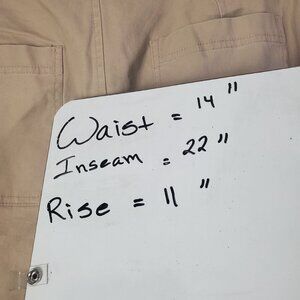 Waist = 14"
Inseam = 22"
Rise = 11"